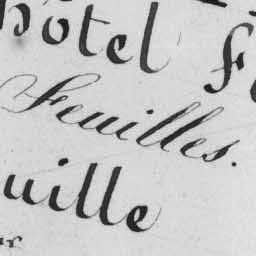 hôtel
Feuilles.
uille